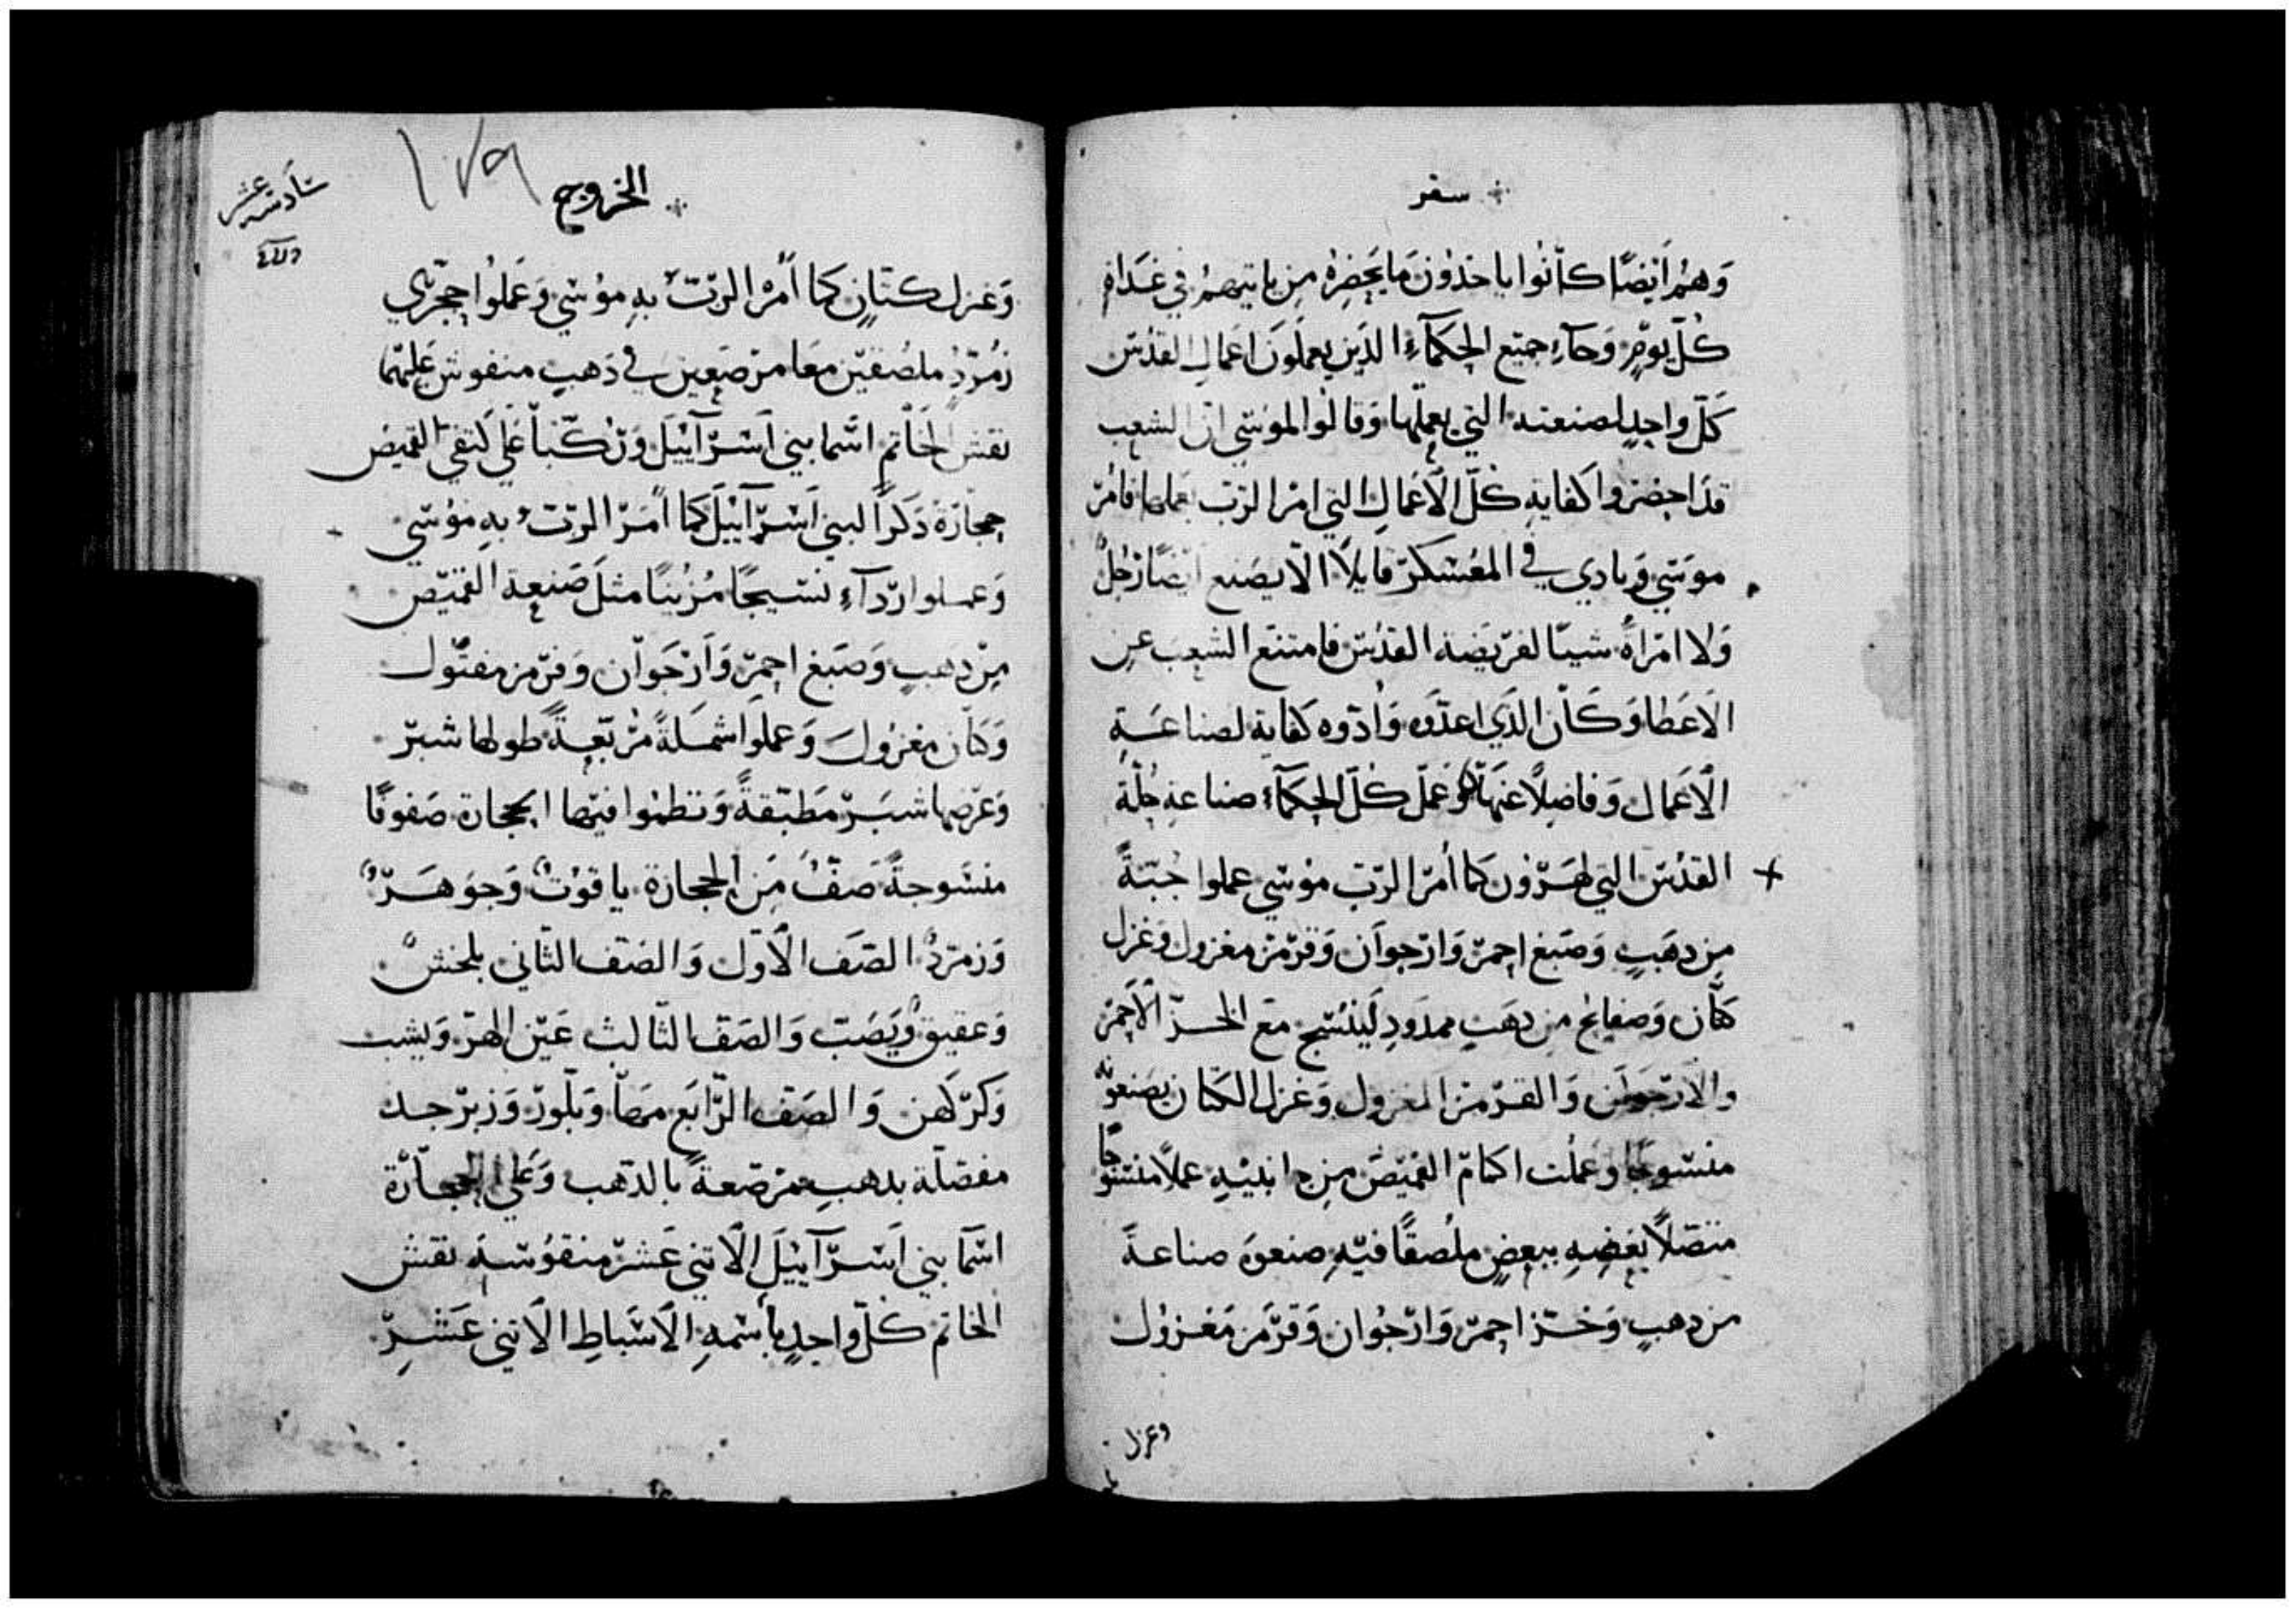 سفر
وَهُم اَيضًا كانُوا ياخدُون مَا يَحضِرُه مِن ياتيهمُ في غَدَاهِ
كُلّ يَومٍ وَجآء جميع الحكمآءِ الذَين يعملَون اعمال القدُس
كَلّ واحدٍ لصنعته التي يعملها وَقالُوا لموُسَي انّ الشعب
قدَ احضروا كفاية كُلّ الاَعمال التي امر الرَب بعملها فامُر
موسَي وَنادي في المعُسَكر قايلاً الاّ يصَنع ايضًا رَجُلٌ
وَلا امرَاةٌ شيئا لفريَضة القدُس فامتنع الشعب عن
الاَعطا وَكَان الذَي اعدّوه وَادّوه كفاية لصناعَةِ
الاَعمال وَفاضِلاً عنهَا وَعَمَل كُل الحكمآء صناعة حُلّة
القدُس التي لهَرون كما أمر الرَب موُسَي عملوا جُبّةً
مِن دهَبٍ وَصَبغ احمر وَارجوَان وَقرمَز مغزول وَغزل
كتّان وَصفايح مِن دهَبٍ ممدَودِ لَينسُج معَ الخز الاَحمَر
والاَرجوان وَالقرمَز المغزول وَغزل الكتان يصَنعوُه
منسَوجًا وَعملت اكمام القميَص مِن جانبيَه عملاً منسَوجًا
متصّلاً بعَضِهِ ببعضٍ ملُصقًا فيَه صنعوَه صناعةً
من دهبٍ وَخَز احمر وَارجُوان وَقرَمز مَغزوُل
وغزل
الخروج
١٧٩
سَادسة عشر
وَغزل كتّانٍ كما أمَر الرَبّ بهِ موُسَي وَعَملُوا حجَري
زمُرّدٍ ملصُقَين معَا مرصَعين في ذهبٍ منقوش عَليهما
نقش الخاتم اسَما بني اسرآئيل وَرُكّبا علَي كتفي القميص
حجارَة ذكرَاً لبني اسَرآئيل كما أمَر الرَبّ بهِ موُسَي
وَعملوا ردَآءِ نسَيجًا مزُينًا مثلَ صَنعة القميَص
مِن دهبٍ وَصَبغ احمر وَارجوَان وَقرمز مفتول
وَكتان مغزوُل وَعملَوا شملةً مرُبّعةً طولها شبر
وَعرَضها شبَر مَطبَقةً وَنظموا فيَها الحجارة صَفوفًا
منسَوجةً صَفٌ مَن الحجارة ياقوتٌ وَجوَهَرٌ
وَزمرّدٌ الصَف الاَوّل وَالصَف الثاني بلخش
وَعقيقٌ وَيَصَب وَالصَف الثالث عَين الهرّ وَيشب
وَكرَكهن وَالصَف الرّابَع مهَا وَبلّور وَزبرجد
مفصَلة بدهبٍ مرصَعةً بالدّهب وَعَلي الحجَارَة
اسَما بني اسَرآئيلَ الاَثني عَشر منقوُشةَ نقش
الخاتم كلّ واحدٍ بأسَمهِ الاَسَباطِ الاثني عَشَرِ